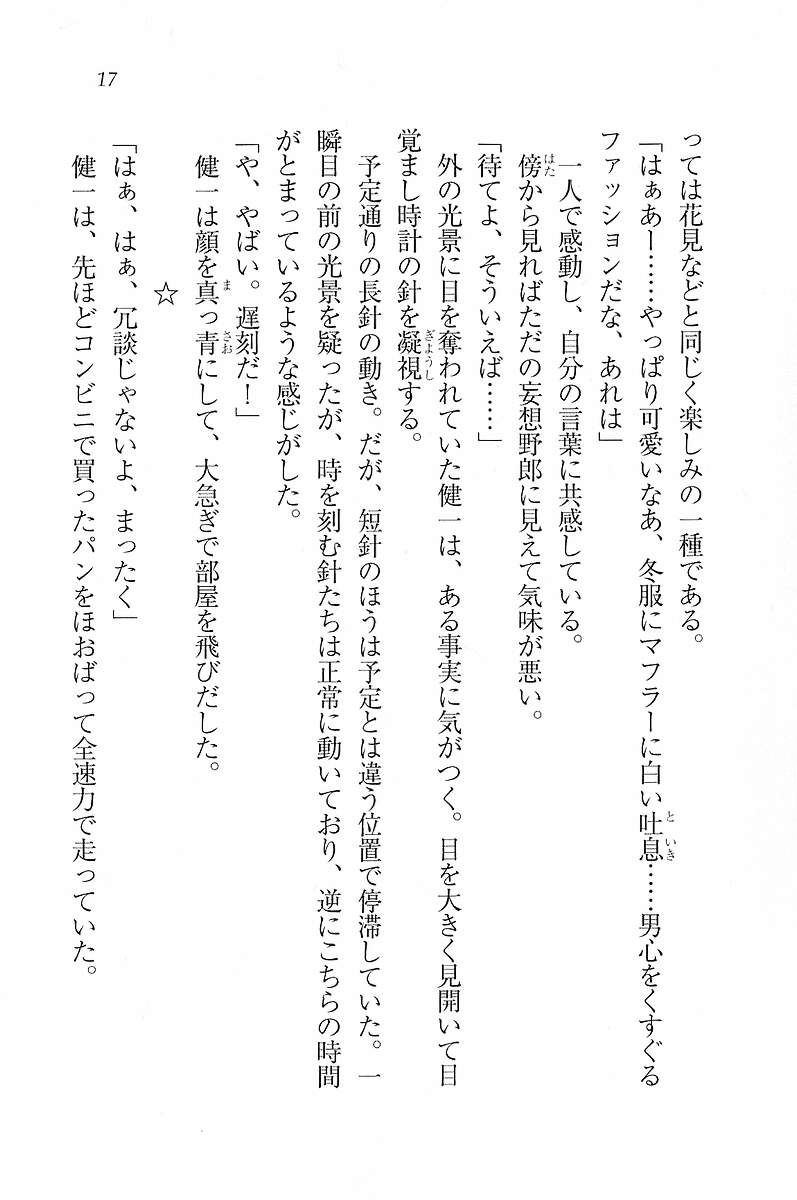 17
っては花見などと同じく楽しみの一種である。
「はぁあー……やっぱり可愛いなあ、冬服にマフラーに白い吐息……男心をくすぐる
ファッションだな、あれは」
一人で感動し、自分の言葉に共感している。
傍から見ればただの妄想野郎に見えて気味が悪い。
「待てよ、そういえば……」
外の光景に目を奪われていた健一は、ある事実に気がつく。目を大きく見開いて目
覚まし時計の針を凝視する。
予定通りの長針の動き。だが、短針のほうは予定とは違う位置で停滞していた。一
瞬目の前の光景を疑ったが、時を刻む針たちは正常に動いており、逆にこちらの時間
がとまっているような感じがした。
「や、やばい。遅刻だ！」
健一は顔を真っ青にして、大急ぎで部屋を飛びだした。
☆
「はぁ、はぁ、冗談じゃないよ、まったく」
健一は、先ほどコンビニで買ったパンをほおばって全速力で走っていた。